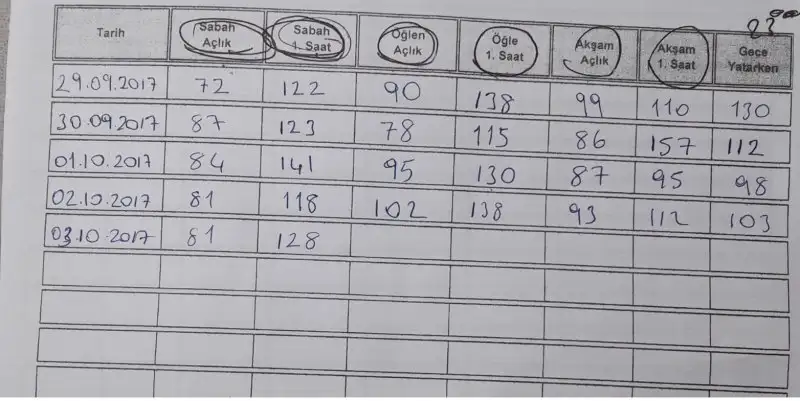 23⁰⁰
Tarih Sabah Açlık Sabah 1. Saat Öğlen Açlık Öğle 1. Saat Akşam Açlık Akşam 1. Saat Gece Yatarken
29.09.2017 72 122 90 138 99 110 130
30.09.2017 87 123 78 115 86 157 112
01.10.2017 84 141 95 130 87 95 98
02.10.2017 81 118 102 138 93 112 103
03.10.2017 81 128